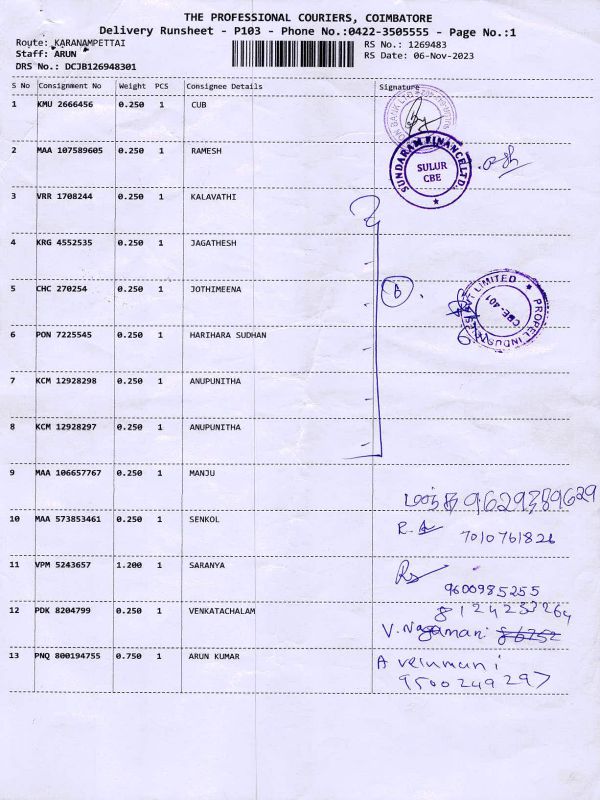 THE PROFESSIONAL COURIERS, COIMBATORE
Delivery Runsheet - P103 - Phone No.:0422-3505555 - Page No.:1
Route: KARANAMPETTAI
Staff: ARUN
DRS No.: DCJB126948301
RS No.: 1269483
RS Date: 06-Nov-2023
S No Consignment No Weight PCS Consignee Details Signature
1 KMU 2666456 0.250 1 CUB
2 MAA 107589605 0.250 1 RAMESH
SUNDARAM FINANCE LTD.
SULUR
CBE
3 VRR 1708244 0.250 1 KALAVATHI
4 KRG 4552535 0.250 1 JAGATHESH
5 CHC 270254 0.250 1 JOTHIMEENA
6
PROPEL INDUS PVT LIMITED
CBE-401
6 PON 7225545 0.250 1 HARIHARA SUDHAN
7 KCM 12928298 0.250 1 ANUPUNITHA
8 KCM 12928297 0.250 1 ANUPUNITHA
9 MAA 106657767 0.250 1 MANJU
9629389629
10 MAA 573853461 0.250 1 SENKOL
7010761826
11 VPM 5243657 1.200 1 SARANYA
9600985255
12 PDK 8204799 0.250 1 VENKATACHALAM
8124253264
V. Nagamani
13 PNQ 800194755 0.750 1 ARUN KUMAR
A velumani
9500249297